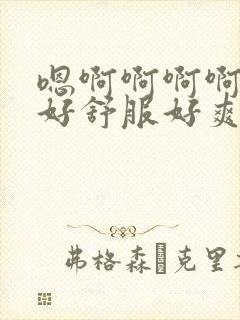 嗯啊啊啊啊
好舒服好爽
弗格森 克里